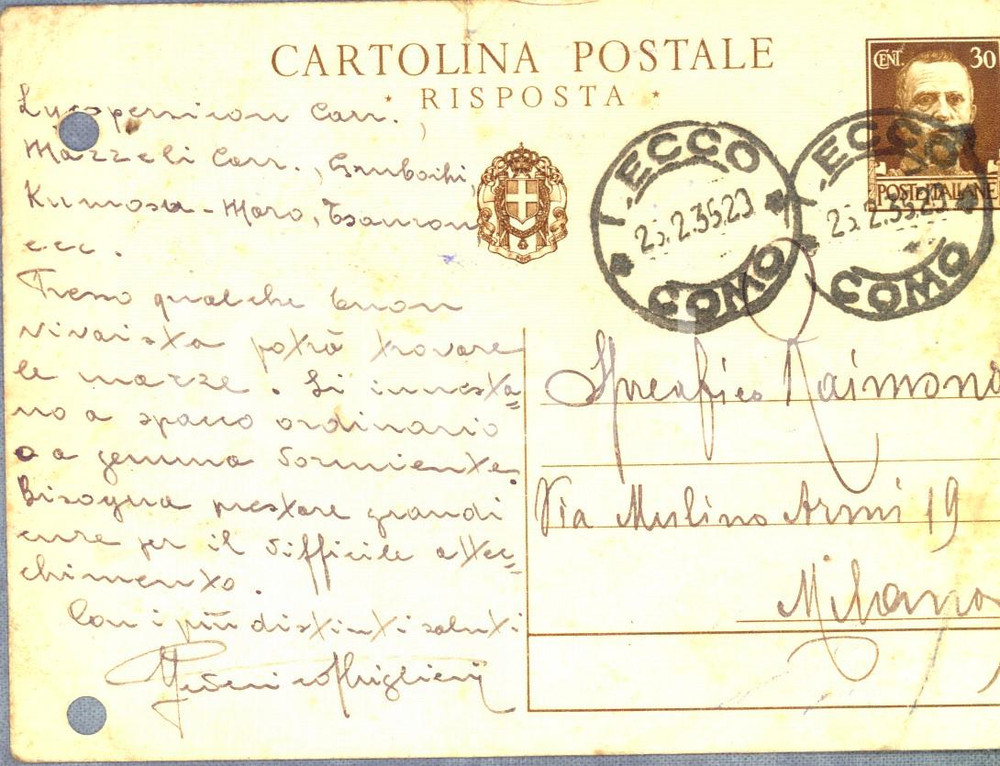 CARTOLINA POSTALE
* RISPOSTA *
CENT. 30
POSTE ITALIANE
LECCO
25.2.35.20
COMO
LECCO
25.2.35.20
COMO
Lycopersicon Carr.,
Mazzeli Carr., Gruboshi,
Kumosu-Maro, Tsauron
ecc.
Presso qualche buon
vivaista potrà trovare
le marze. Si innesta=
no a spacco ordinario
o a gemma dormiente.
Bisogna prestare grandi
cure per il difficile attec=
chimento.
Con i più distinti saluti
Spreafico Raimond
Via Mulino Armi 19
Milano